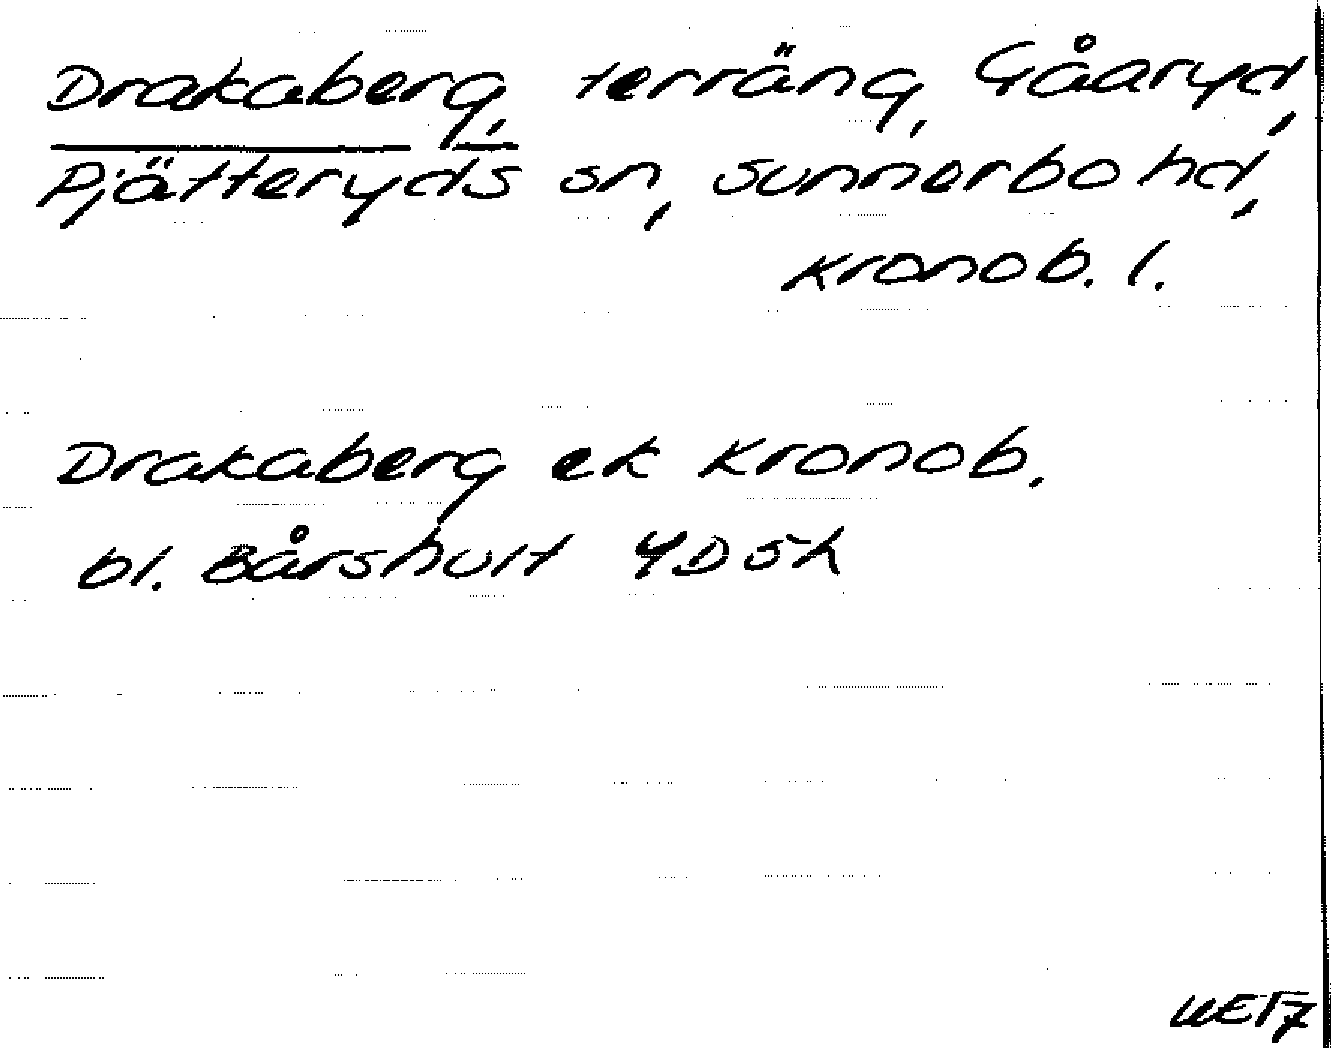 Drakaberg, terräng, Gåaryd,
Pjätteryds sn, Sunnerbo hd,
Kronob. l.
Drakaberg ek Kronob.
bl. Bårshult 4D5h